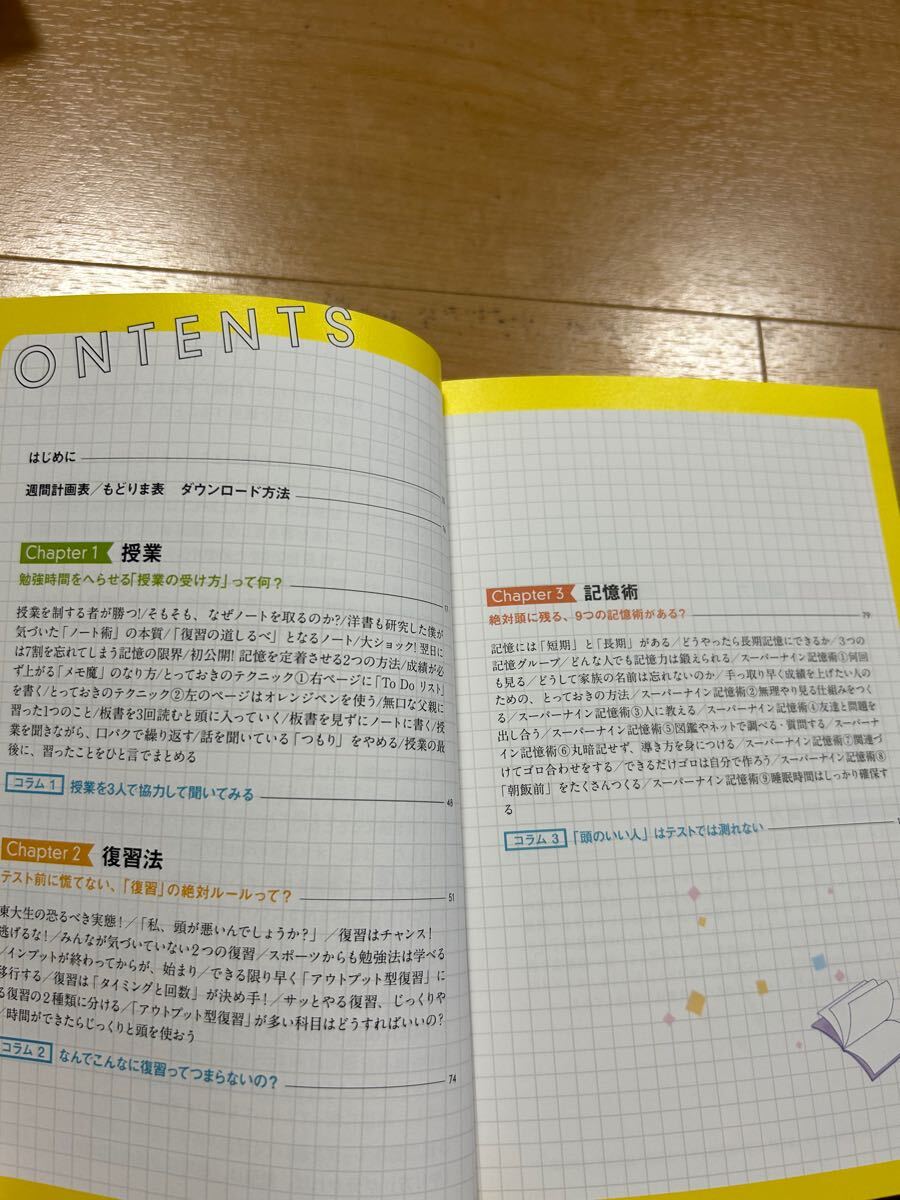 ONTENTS
はじめに
週間計画表/もどりま表 ダウンロード方法
Chapter 1 授業
勉強時間をへらせる「授業の受け方」って何? 17
授業を制する者が勝つ!/そもそも、なぜノートを取るのか?/洋書も研究した僕が
気づいた「ノート術」の本質/「復習の道しるべ」となるノート/大ショック!翌日に
は7割を忘れてしまう記憶の限界/初公開!記憶を定着させる2つの方法/成績が必
ず上がる「メモ魔」のなり方/とっておきのテクニック①右ページに「To Do リスト」
を書く/とっておきのテクニック②左のページはオレンジペンを使う/無口な父親に
習った1つのこと/板書を3回読むと頭に入っていく/板書を見ずにノートに書く/授
業を聞きながら、口パクで繰り返す/話を聞いている「つもり」をやめる/授業の最
後に、習ったことをひと言でまとめる
コラム 1 授業を3人で協力して聞いてみる 48
Chapter 2 復習法
テスト前に慌てない、「復習」の絶対ルールって? 51
東大生の恐るべき実態!/「私、頭が悪いんでしょうか?」/復習はチャンス!
逃げるな!/みんなが気づいていない2つの復習/スポーツからも勉強法は学べる
/インプットが終わってからが、始まり/できる限り早く「アウトプット型復習」に
移行する/復習は「タイミングと回数」が決め手!/サッとやる復習、じっくりや
る復習の2種類に分ける/「アウトプット型復習」が多い科目はどうすればいいの?
/時間ができたらじっくりと頭を使おう
コラム 2 なんでこんなに復習ってつまらないの? 74
Chapter 3 記憶術
絶対頭に残る、9つの記憶術がある? 79
記憶には「短期」と「長期」がある/どうやったら長期記憶にできるか/3つの
記憶グループ/どんな人でも記憶力は鍛えられる/スーパーナイン記憶術①何回
も見る/どうして家族の名前は忘れないのか/手っ取り早く成績を上げたい人の
ための、とっておきの方法/スーパーナイン記憶術②無理やり見る仕組みをつく
る/スーパーナイン記憶術③人に教える/スーパーナイン記憶術④友達と問題を
出し合う/スーパーナイン記憶術⑤図鑑やネットで調べる・質問する/スーパーナ
イン記憶術⑥丸暗記せず、導き方を身につける/スーパーナイン記憶術⑦関連づ
けてゴロ合わせをする/できるだけゴロは自分で作ろう/スーパーナイン記憶術⑧
「朝飯前」をたくさんつくる/スーパーナイン記憶術⑨睡眠時間はしっかり確保す
る
コラム 3 「頭のいい人」はテストでは測れない